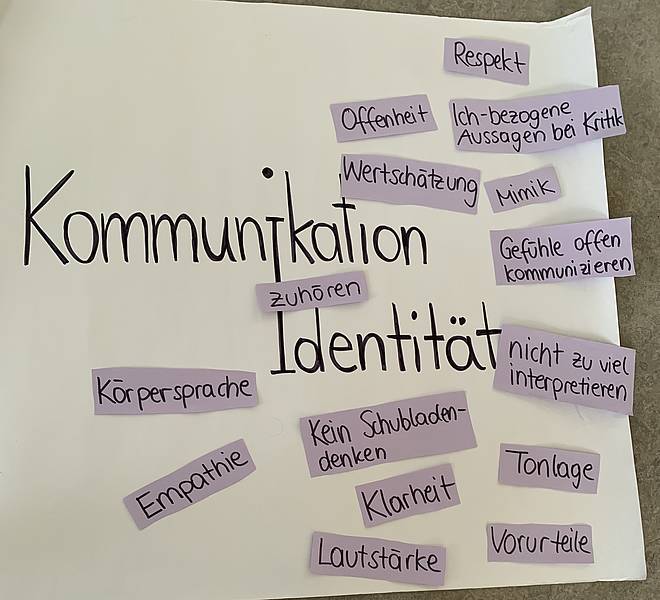 Respekt
Offenheit
Ich-bezogene
Aussagen bei Kritik
Wertschätzung
Mimik
Kommunikation
Gefühle offen
kommunizieren
zuhören
Identität
nicht zu viel
interpretieren
Körpersprache
Kein Schubladen-
denken
Empathie
Tonlage
Klarheit
Lautstärke
Vorurteile